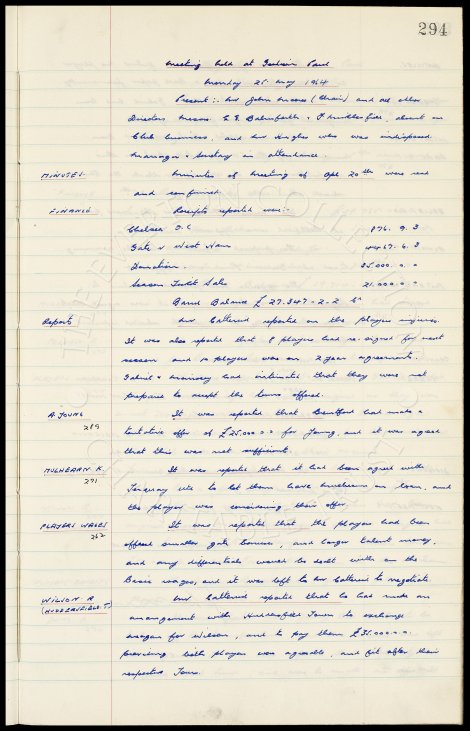 294
Meeting held at Goodison Park
Monday 25 May 1964
Present:- Mr John Moores (Chair) and all other
Directors Messrs. E. Balmforth & F Micklesfield, absent on
Club business, and Mr Hughes who was indisposed.
Manager & Secretary in attendance.
MINUTES. Minutes of meeting of Apl 20th were read
and confirmed.
FINANCE Receipts reported were:-
Chelsea F.C 876. 9. 3
Gate v West Ham 4467. 6. 3
Donation. 35.000. 0. 0
Season Ticket Sale 21.000. 0. 0
Bank Balance £ 27.347-2-2
Reports Mr Catterick reported on the players injuries.
It was also reported that players had re-signed for next
season and 10 players were on 2 year agreements.
Gabriel & had intimated that they were not
prepared to accept the terms offered.
A. YOUNG It was reported that Brentford had made a
289 tentative offer of £25.000.0.0 for Young, and it was agreed
that this was not sufficient.
MULHEARN K. It was reported that it had been agreed with
291 Torquay Utd to let them have Mulhearn on loan, and
the player was considering their offer.
PLAYERS WAGES It was reported that the players had been
262 offered smaller gate bonuses, and larger talent money,
and any differentials would be dealt with on the
Basic wages, and it was left to Mr Catterick to negotiate.
WILSON R Mr Catterick reported that he had made an
(HUDDERSFIELD.T) arrangement with Huddersfield Town to exchange
Meagan for Wilson, and to pay them £35.000.0.0.
providing both players were agreeable, and fit after their
respective Tours.
THE EVERTON COLLECTION